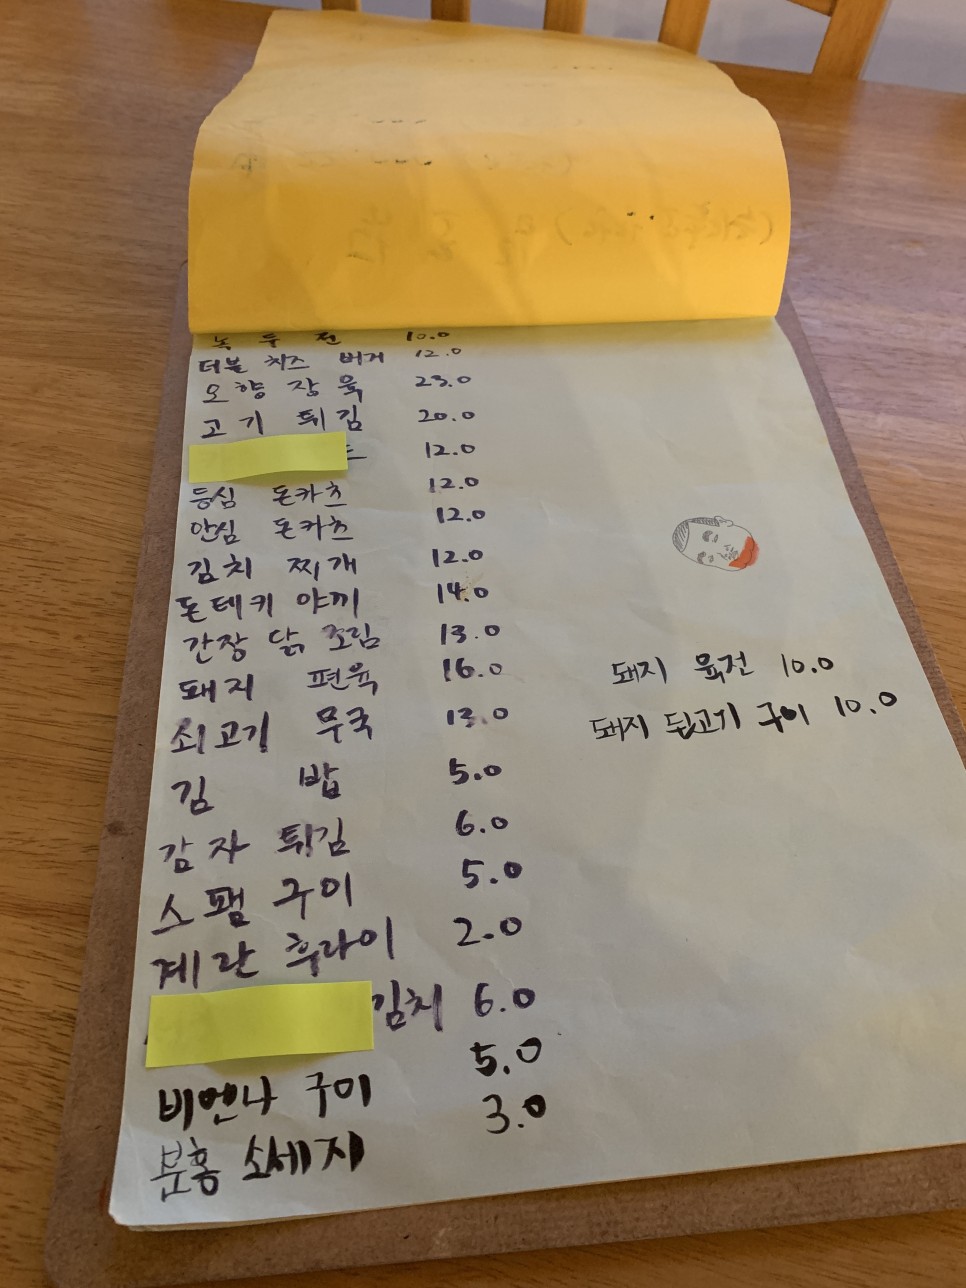 녹두전 10.0
더블 치즈 버거 12.0
오향장육 23.0
고기 튀김 20.0
12.0
등심 돈카츠 12.0
안심 돈카츠 12.0
김치 찌개 12.0
돈테키 야끼 14.0
간장 닭 조림 13.0
돼지 편육 16.0
쇠고기 무국 13.0
김밥 5.0
감자 튀김 6.0
스팸 구이 5.0
계란 후라이 2.0
김치 6.0
비엔나 구이 5.0
분홍 소세지 3.0
돼지 육전 10.0
돼지 뒷고기 구이 10.0